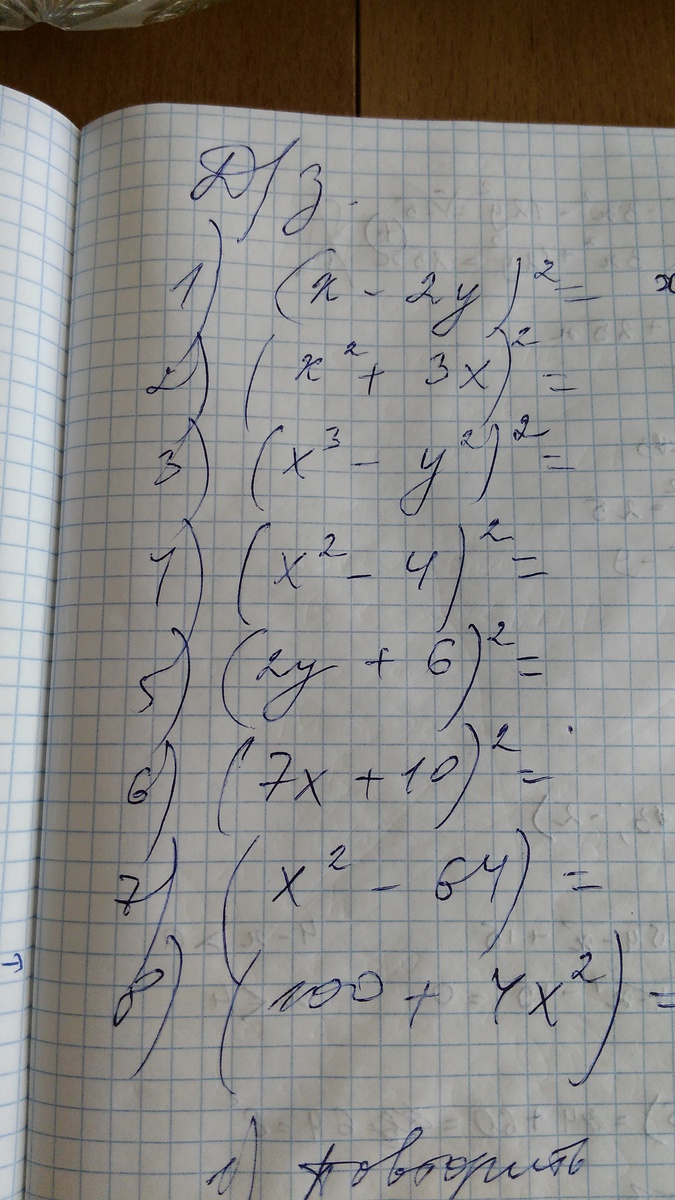 Д/з.
1) (x - 2y)² = x
2) (x² + 3x)² =
3) (x³ - y²)² =
4) (x² - 4)² =
5) (2y + 6)² =
6) (7x + 10)² =
7) (x² - 64) =
8) (100 + 4x²) =
повторить